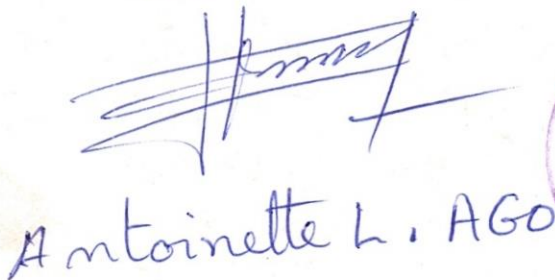 Antoinette L. AGO